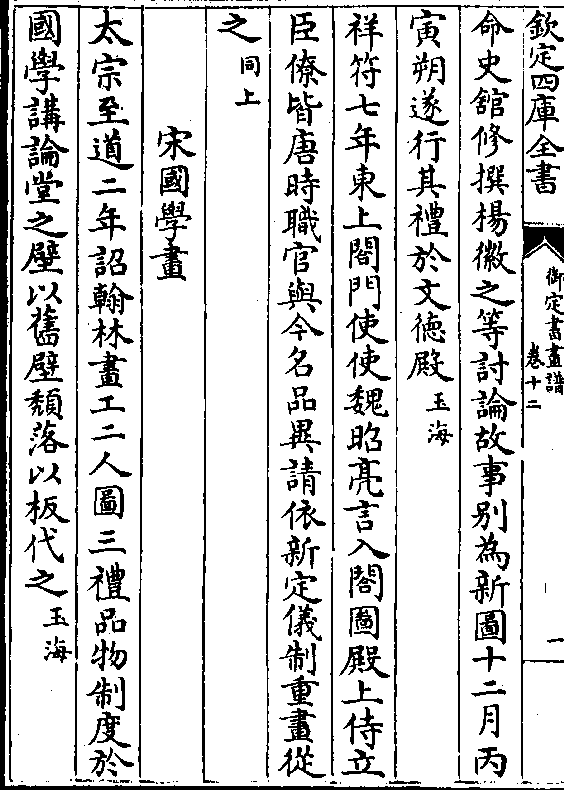 欽定四庫全書
御定書畫譜
卷十二
一
命史舘修撰楊徽之等討論故事别為新圖十二月丙
寅朔遂行其禮於文徳殿玉海
祥符七年東上閤門使使魏昭亮言入閤圖殿上侍立
臣僚皆唐時職官與今名品異請依新定儀制重畫從
之同上
宋國學畫
太宗至道二年詔翰林畫工二人圖三禮品物制度於
國學講論堂之壁以舊壁頽落以板代之玉海